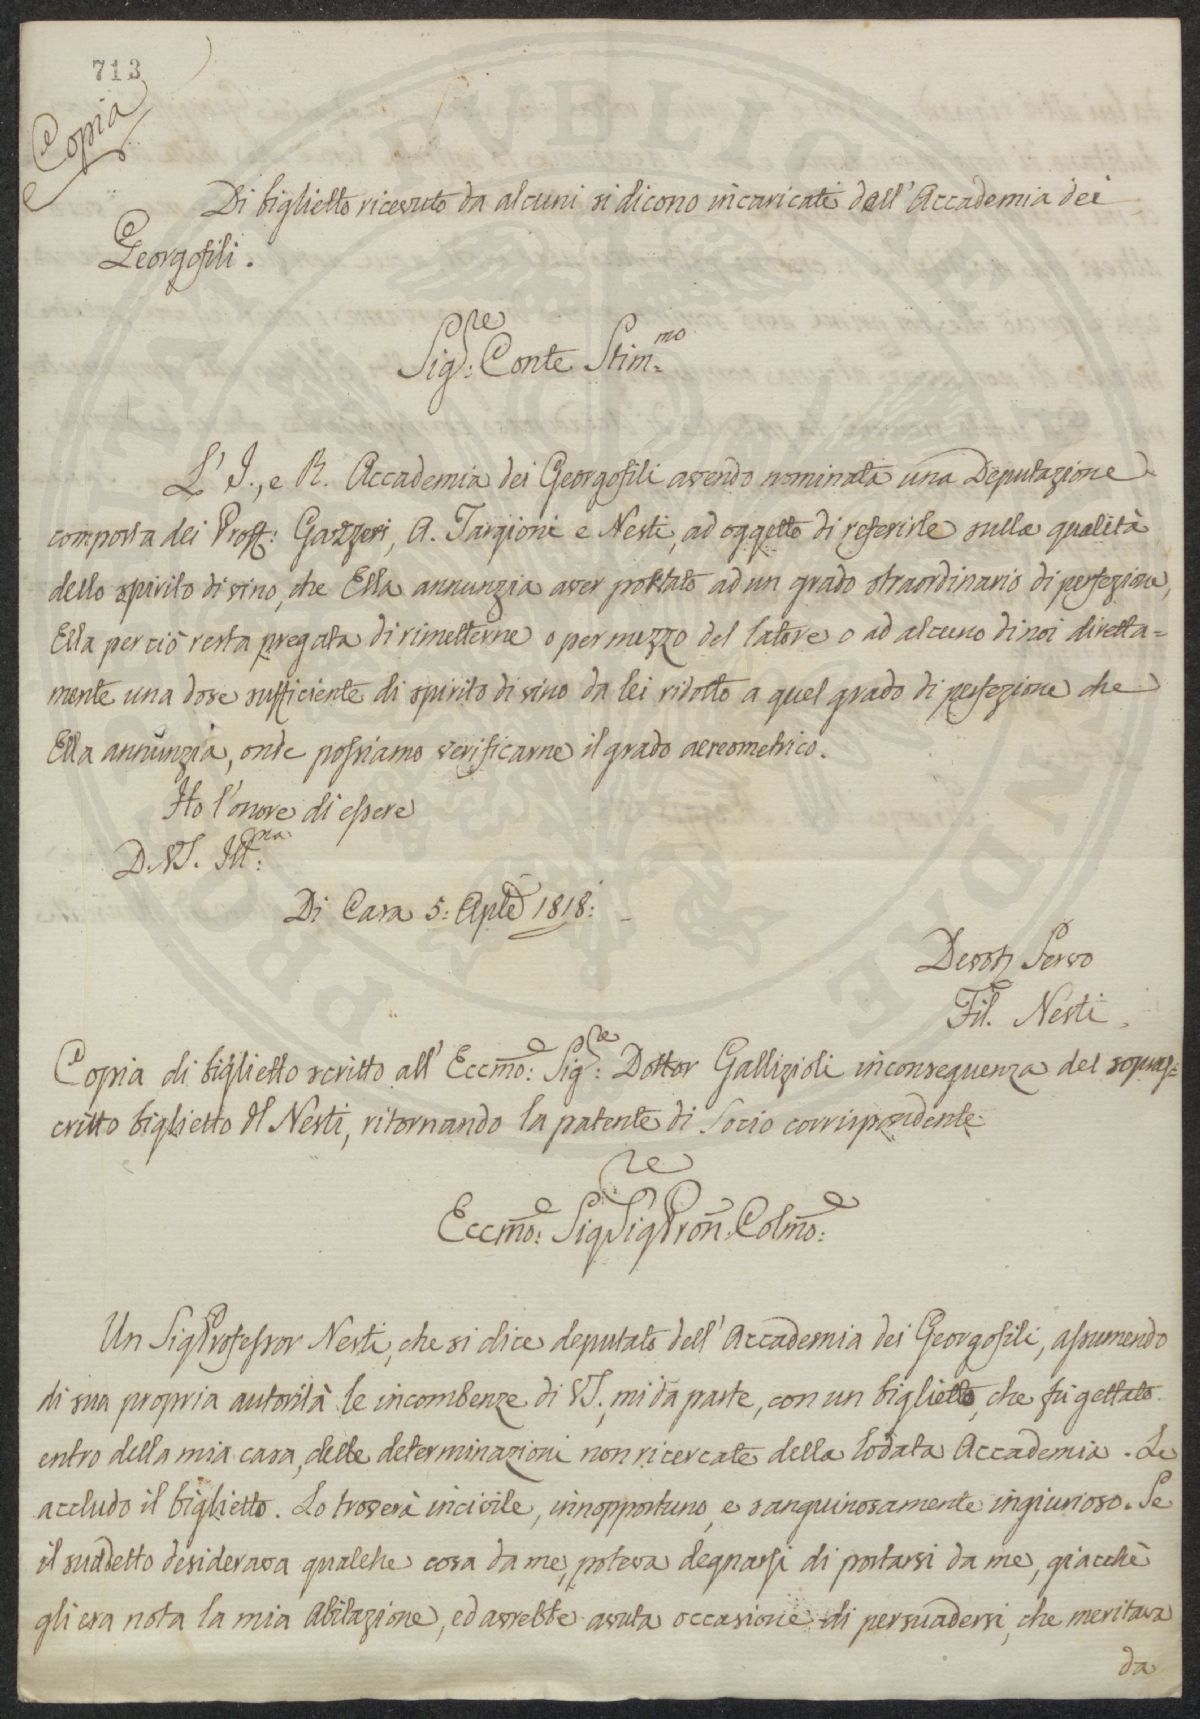 713
Copia
Di biglietto ricevuto da alcuni si dicono incaricati dall'Accademia dei
Georgofili.
Sig:re Conte Stim:mo
L'I., e R. Accademia dei Georgofili avendo nominata una Deputazione
composta dei Proff: Gazzeri, A. Targioni e Nesti, ad oggetto di referirle sulla qualità
dello spirito di vino, che Ella annunzia aver portato ad un grado straordinario di perfezione,
Ella perciò resta pregata di rimetterne o per mezzo del latore o ad alcuno di noi diretta=
mente una dose sufficiente di spirito di vino da lei ridotto a quel grado di perfezione che
Ella annunzia, onde possiamo verificarne il grado aereometrico.
Ho l'onore di essere
D. VS. Ill:ma
Di Casa 5: Aple 1818:
Devot Servo
Fil. Nesti.
Copia di biglietto scritto all' Eccmo: Sig:re Dottor Gallizioli inconseguenza del sopras=
critto biglietto di Nesti, ritornando la patente di Socio corrispondente
Eccmo: Sig Sigre Pron: Colmo:
Un Sig Professor Nesti, che si dice deputato dell'Accademia dei Georgofili, assumendo
di sua propria autorità le incombenze di VS., mi da parte, con un biglietto, che fù gettato
entro della mia casa, delle determinazioni non ricercate della lodata Accademia. Le
accludo il biglietto. Lo troverà incivile, innopportuno, e sanguinosamente ingiurioso. Se
il suddetto desiderava qualche cosa da me, poteva degnarsi di portarsi da me, giacchè
gli era nota la mia Abitazione, ed avrebbe avuta occasione di persuadersi, che meritava
da